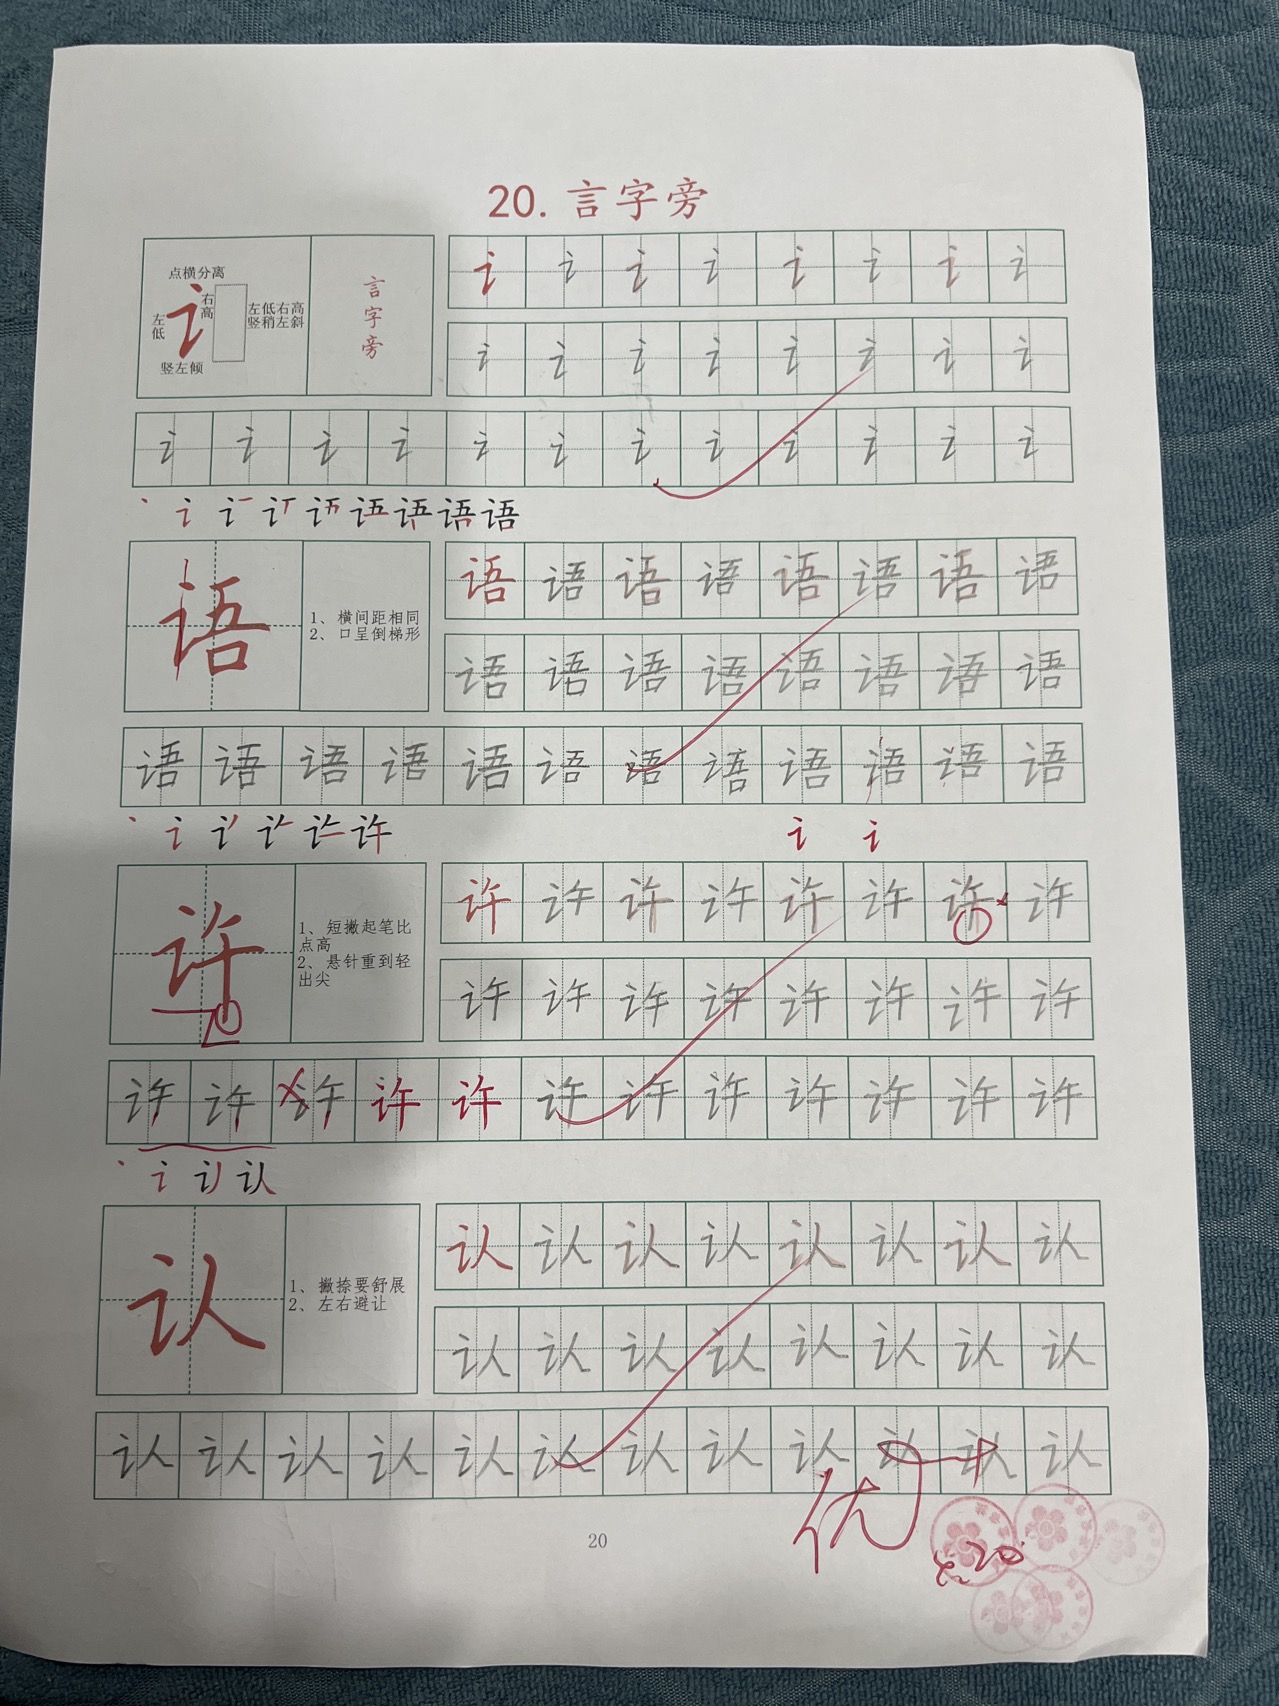 20. 言字旁
点横分离
右高
左低
左低右高
竖稍左斜
竖左倾
讠
言字旁
讠 讠 讠 讠 讠 讠 讠 讠
讠 讠 讠 讠 讠 讠 讠 讠
讠 讠 讠 讠 讠 讠 讠 讠 讠 讠 讠 讠
语
语
1、横间距相同
2、口呈倒梯形
语 语 语 语 语 语 语 语
语 语 语 语 语 语 语 语
语 语 语 语 语 语 语 语 语 语 语 语
讠 讠
许
许
1、短撇起笔比
点高
2、悬针重到轻
出尖
许 许 许 许 许 许 许 许
许 许 许 许 许 许 许 许
许 许 许 许 许 许 许 许 许 许 许 许
认
认
1、撇捺要舒展
2、左右避让
认 认 认 认 认 认 认 认
认 认 认 认 认 认 认 认
认 认 认 认 认 认 认 认 认 认 认 认
优+
20